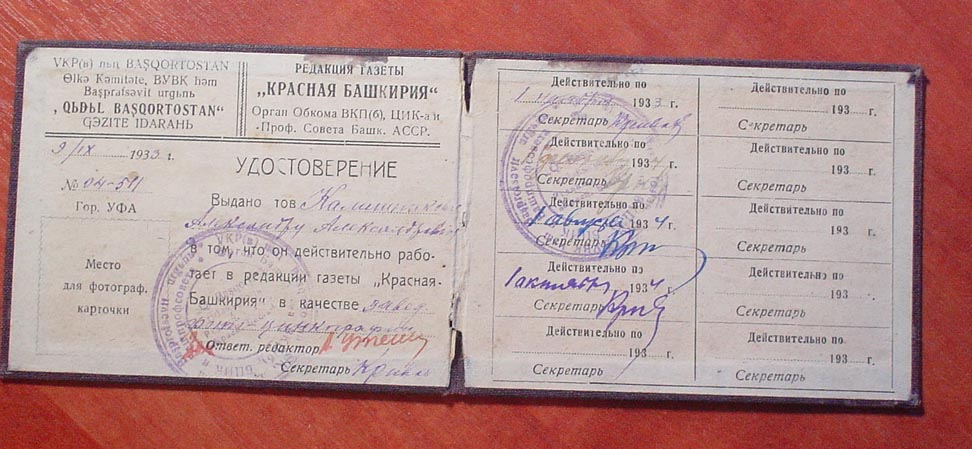 VKP(в) nьꞑ BAŞQORTOSTAN
Өlkə Kəmitəte, BYBK həm
Başprafsəvit urgənь
„QЬƵЬL BAŞQORTOSTAN“
GƏZITE IDARAHЬ
РЕДАКЦИЯ ГАЗЕТЫ
„КРАСНАЯ БАШКИРИЯ“
Орган Обкома ВКП(б), ЦИК-а и
Проф. Совета Башк. АССР.
9/IX 1933 г.
УДОСТОВЕРЕНИЕ
№ 04-511
Гор. УФА
Выдано тов
Александру
в том, что он действительно рабо-
тает в редакции газеты „Красная
Башкирия“ в качестве завед.
Фото-цинкографии
Место
для фотограф.
карточки
Ответ. редактор
Секретарь
Действительно по
1 1933 г.
Секретарь
Действительно по
Секретарь
Действительно по
1 августа 1934 г.
Секретарь
Действительно по
1 октября 1934 г.
Секретарь
Действительно по
193 г.
Секретарь
Действительно по
193 г.
Секретарь
Действительно по
193 г.
Секретарь
Действительно по
193 г.
Секретарь
Действительно по
193 г.
Секретарь
Действительно по
193 г.
Секретарь